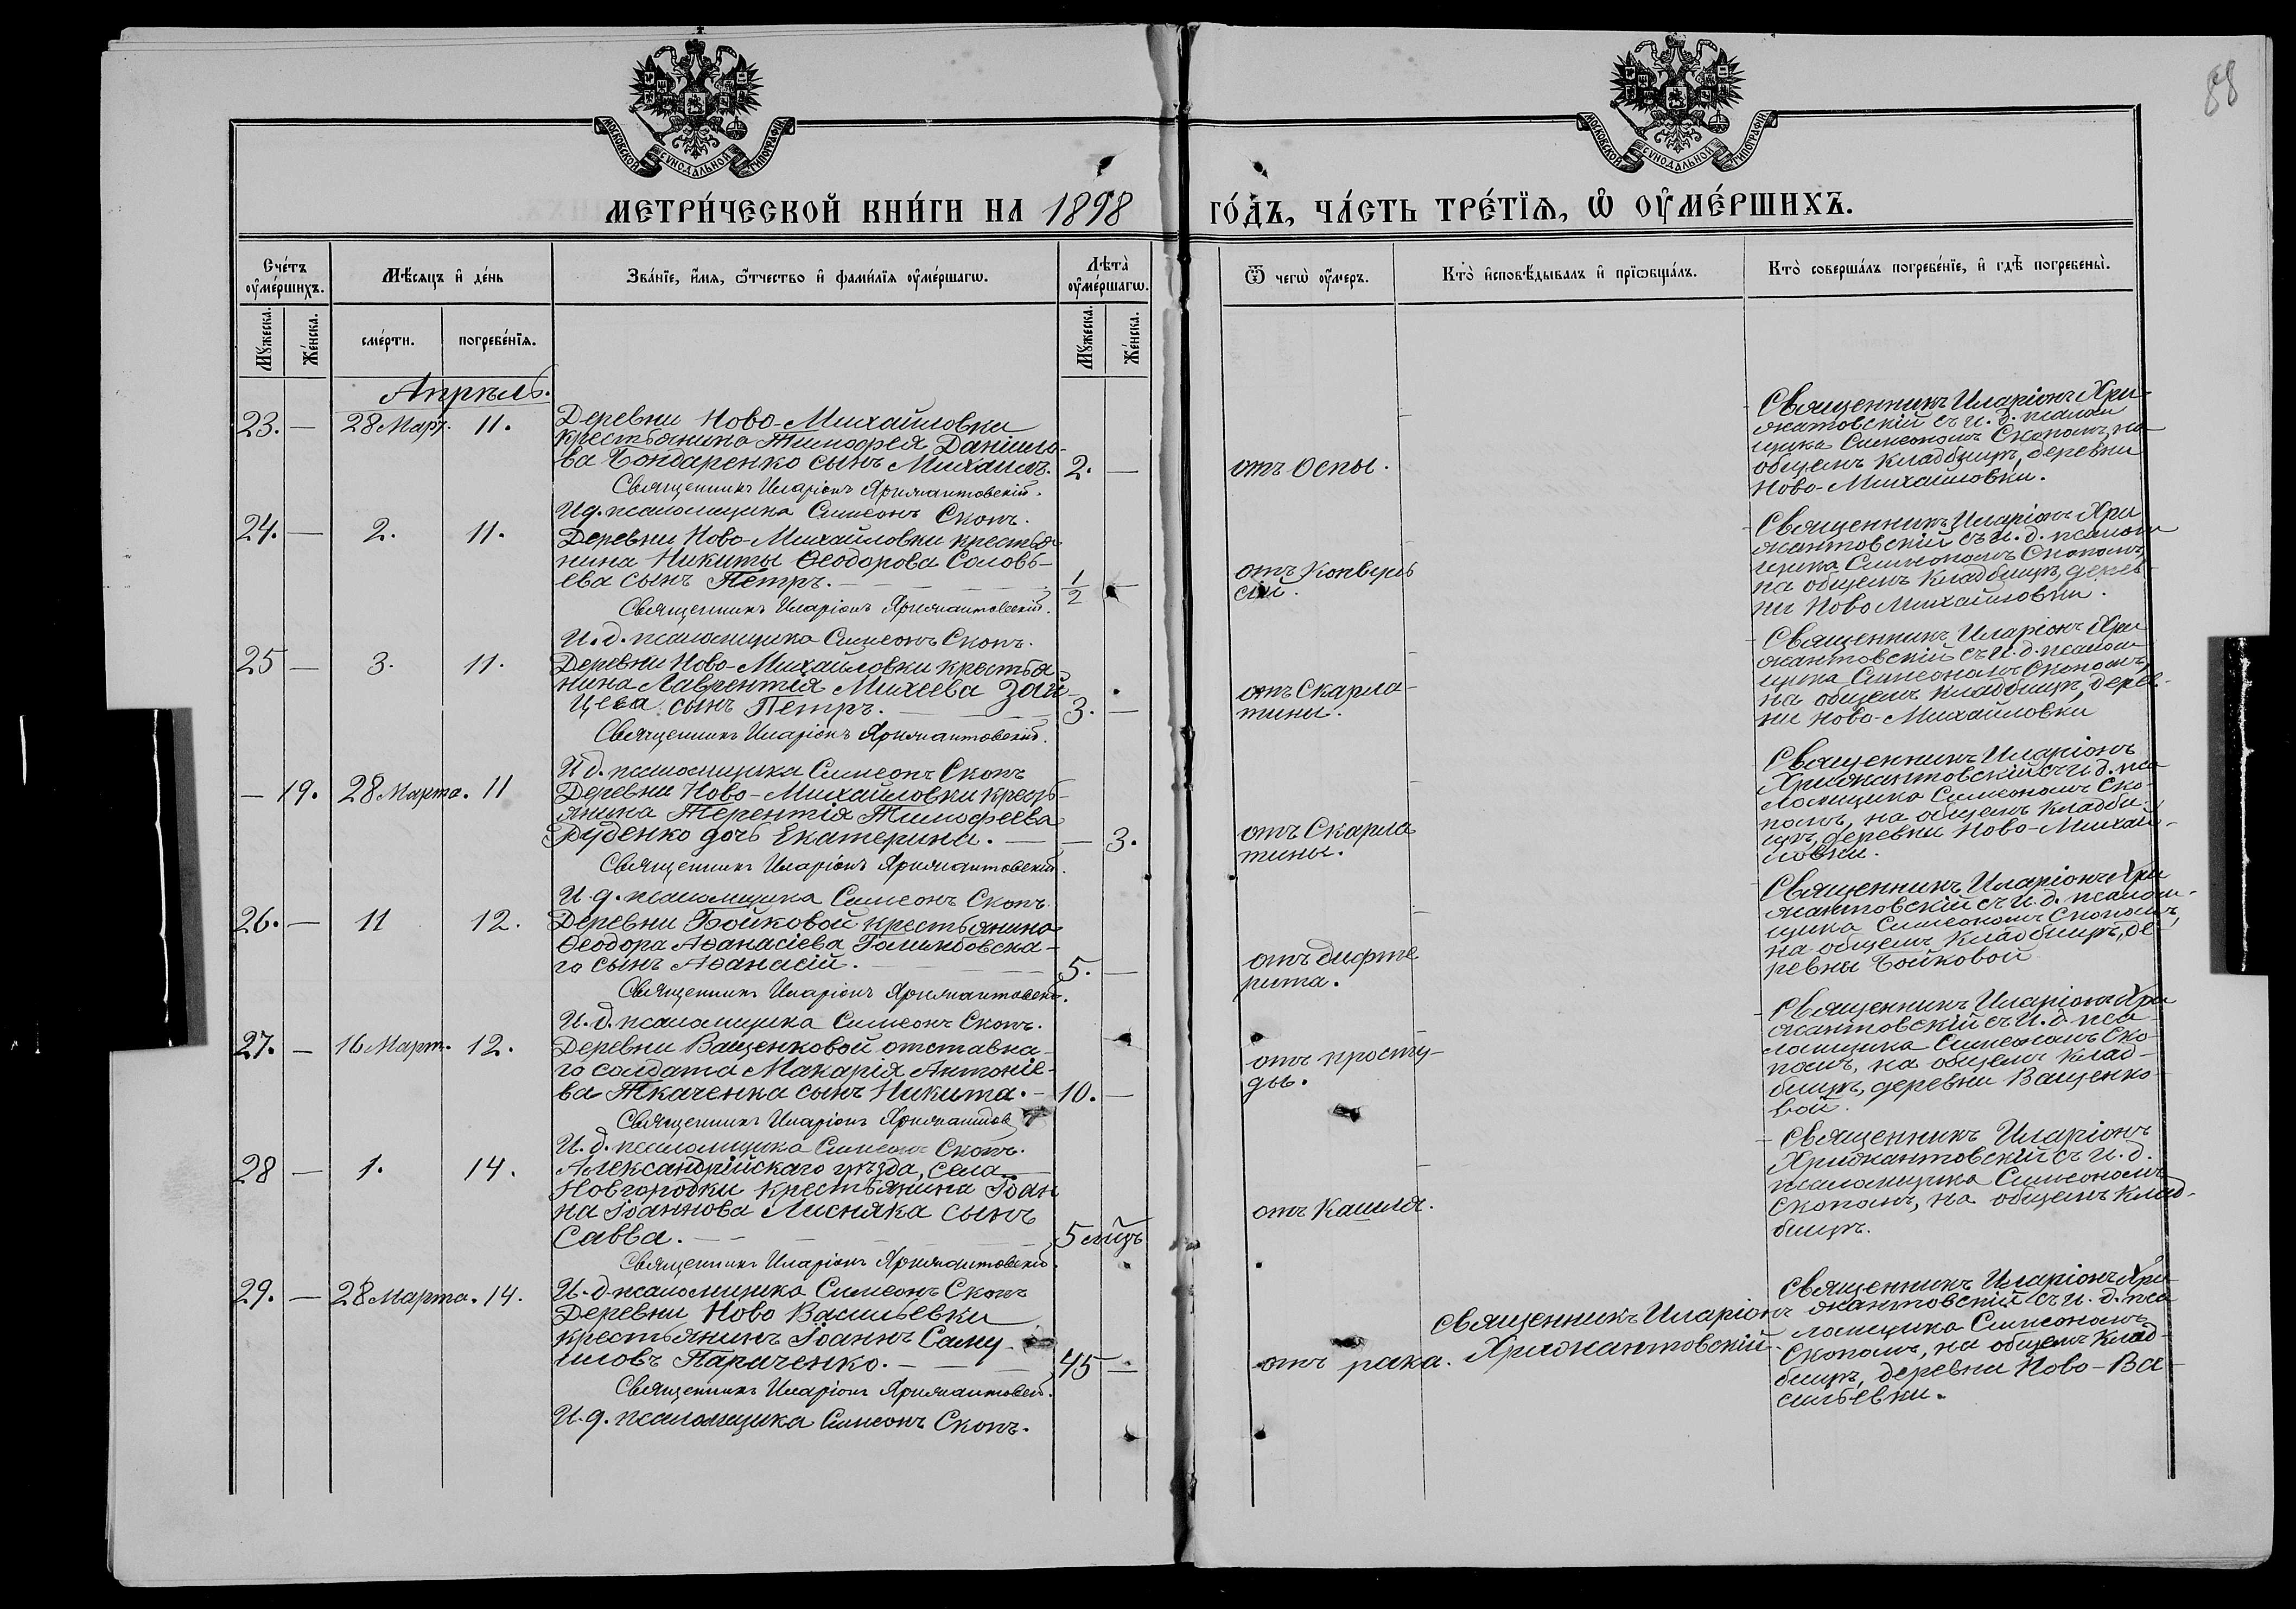 88
МОСКОВСКОЙ СѴНОДАЛЬНОЙ ТИПОГРАФІИ
МОСКОВСКОЙ СѴНОДАЛЬНОЙ ТИПОГРАФІИ
МЕТРИ́ЧЕСКОЙ КНИ́ГИ НА 1898 ГО́ДЪ, ЧА́СТЬ ТРЕ́ТЇѦ, Ѡ ОУМЕ́РШИХЪ.
Сче́тъ оуме́ршихъ.
Мѣ́сѧцъ и де́нь
Зва́нїе, и́мѧ, ѻ́тчество и фами́лїѧ оуме́ршагѡ.
Лѣта̀ оуме́ршагѡ.
Ѿ чегѡ̀ оу́меръ.
Кто̀ исповѣ́дывалъ и прїѡбща́лъ.
Кто̀ соверша́лъ погребе́нїе, и гдѣ̀ погребены̀.
Мꙋ́жеска.
Же́нска.
сме́рти.
погребе́нїѧ.
Мꙋ́жеска.
Же́нска.
Апрѣль.
23. — 28 Март. 11.
Деревни Ново-Михайловки
крестьянина Тимофея Данило-
ва Бондаренко сынъ Михаилъ. 2. —
Священникъ Иларіонъ Хрижантовскій.
И.д. псаломщика Симеонъ Скопъ.
отъ Оспы.
Священникъ Иларіонъ Хри-
жантовскій съ и. д. псалом
щика Симеономъ Скопомъ, на
общемъ кладбищѣ, деревни
Ново-Михайловки.
24. — 2. 11.
Деревни Ново-Михайловки крестья
нина Никиты Ѳеодорова Соловь-
ева сынъ Петръ. — 1/2 —
Священникъ Иларіонъ Хрижантовскій.
И.д. псаломщика Симеонъ Скопъ.
отъ Конвуль
сій.
Священникъ Иларіонъ Хри
жантовскій съ И.д. псалом
щика Симеономъ Скопомъ,
на общемъ кладбищѣ, дерев
ни Ново Михайловки.
25 — 3. 11.
Деревни Ново-Михайловки крестья
нина Лаврентія Михеева Зай-
цева сынъ Петръ. — 3. —
Священникъ Иларіонъ Хрижантовскій.
И д. псаломщика Симеонъ Скопъ
отъ Скарла-
тины.
Священникъ Иларіонъ Хри
жантовскій съ И.д. псалом
щика Симеономъ Скопомъ,
на общемъ кладбищѣ, дерев-
ни Ново-Михайловки
— 19. 28 Марта. 11
Деревни Ново-Михайловки кресть-
янина Терентія Тимофеева
Руденко дочь Екатерина. — — 3.
Священникъ Иларіонъ Хрижантовскій.
И.д. псаломщика Симеонъ Скопъ.
отъ Скарла
тины.
Священникъ Иларіонъ
Хрижантовскій съ И.д. пса
ломщика Симеономъ Ско-
помъ, на общемъ кладби-
щѣ, деревни Ново-Михай-
ловки.
26. — 11 12.
Деревни Бойковой крестьянина
Ѳеодора Аѳанасіева Голимбовска-
го сынъ Аѳанасій. — 5. —
Священникъ Иларіонъ Хрижантовскі.
И.д. псаломщика Симеонъ Скопъ.
отъ дифте
рита.
Священникъ Иларіонъ Хри
жантовскій съ И.д. псалом-
щика Симеономъ Скопомъ,
на общемъ кладбищѣ, де-
ревни Бойковой
27. — 16 Март. 12.
Деревни Ващенковой отставна-
го солдата Макарія Антоніе-
ва Ткаченка сынъ Никита. — 10. —
Священникъ Иларіонъ Хрижантов
И.д. псаломщика Симеонъ Скопъ.
отъ просту-
ды.
Священникъ Иларіонъ Хри
жантовскій съ И.д. пса
ломщика Симеономъ Ско-
помъ, на общемъ клад-
бищѣ, деревни Ващенко-
вой.
28 — 1. 14.
Александрійскаго уѣзда, села
Новгородки крестьянина Іоан
на Іоаннова Лисняка сынъ
Савва. — 5 мцъ
Священникъ Иларіонъ Хрижантовскій.
И.д. псаломщика Симеонъ Скопъ
отъ Кашля.
Священникъ Иларіонъ
Хрижантовскій съ И.д.
псаломщика Симеономъ
Скопомъ, на общемъ клад-
бищѣ.
29. — 28 Марта. 14.
Деревни Ново Васильевки
крестьянинъ Іоаннъ Саму-
иловъ Параченко. — 45 —
Священникъ Иларіонъ Хрижантовскі.
И.д. псаломщика Симеонъ Скопъ.
отъ рака.
Священникъ Иларіонъ
Хрижантовскій
Священникъ Иларіонъ Хри-
жантовскій съ И.д. пса
ломщика Симеономъ
Скопомъ, на общемъ клад-
бищѣ, деревни Ново-Ва-
сильевки.